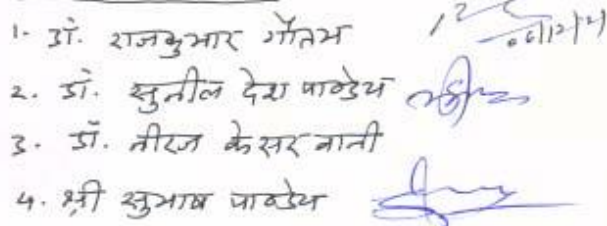 1. डॉ. राजकुमार गौतम 06/12/21
2. डॉ. सुनील देश पाण्डेय
3. डॉ. नीरज केसर वानी
4. श्री सुभाष पाण्डेय